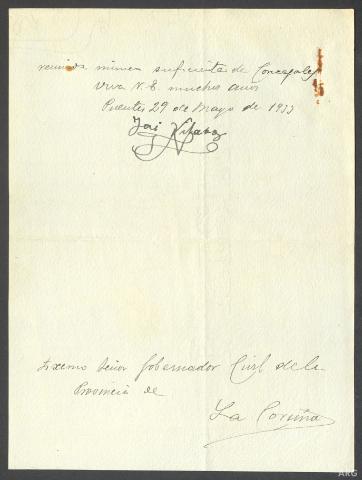 reunido numero suficiente de Concejales
Viva V. E. muchos años
Puentes 29 de Mayo de 1933
José
Exxmo Señor Gobernador Civil de la
Provincia de
La Coruña
ARG